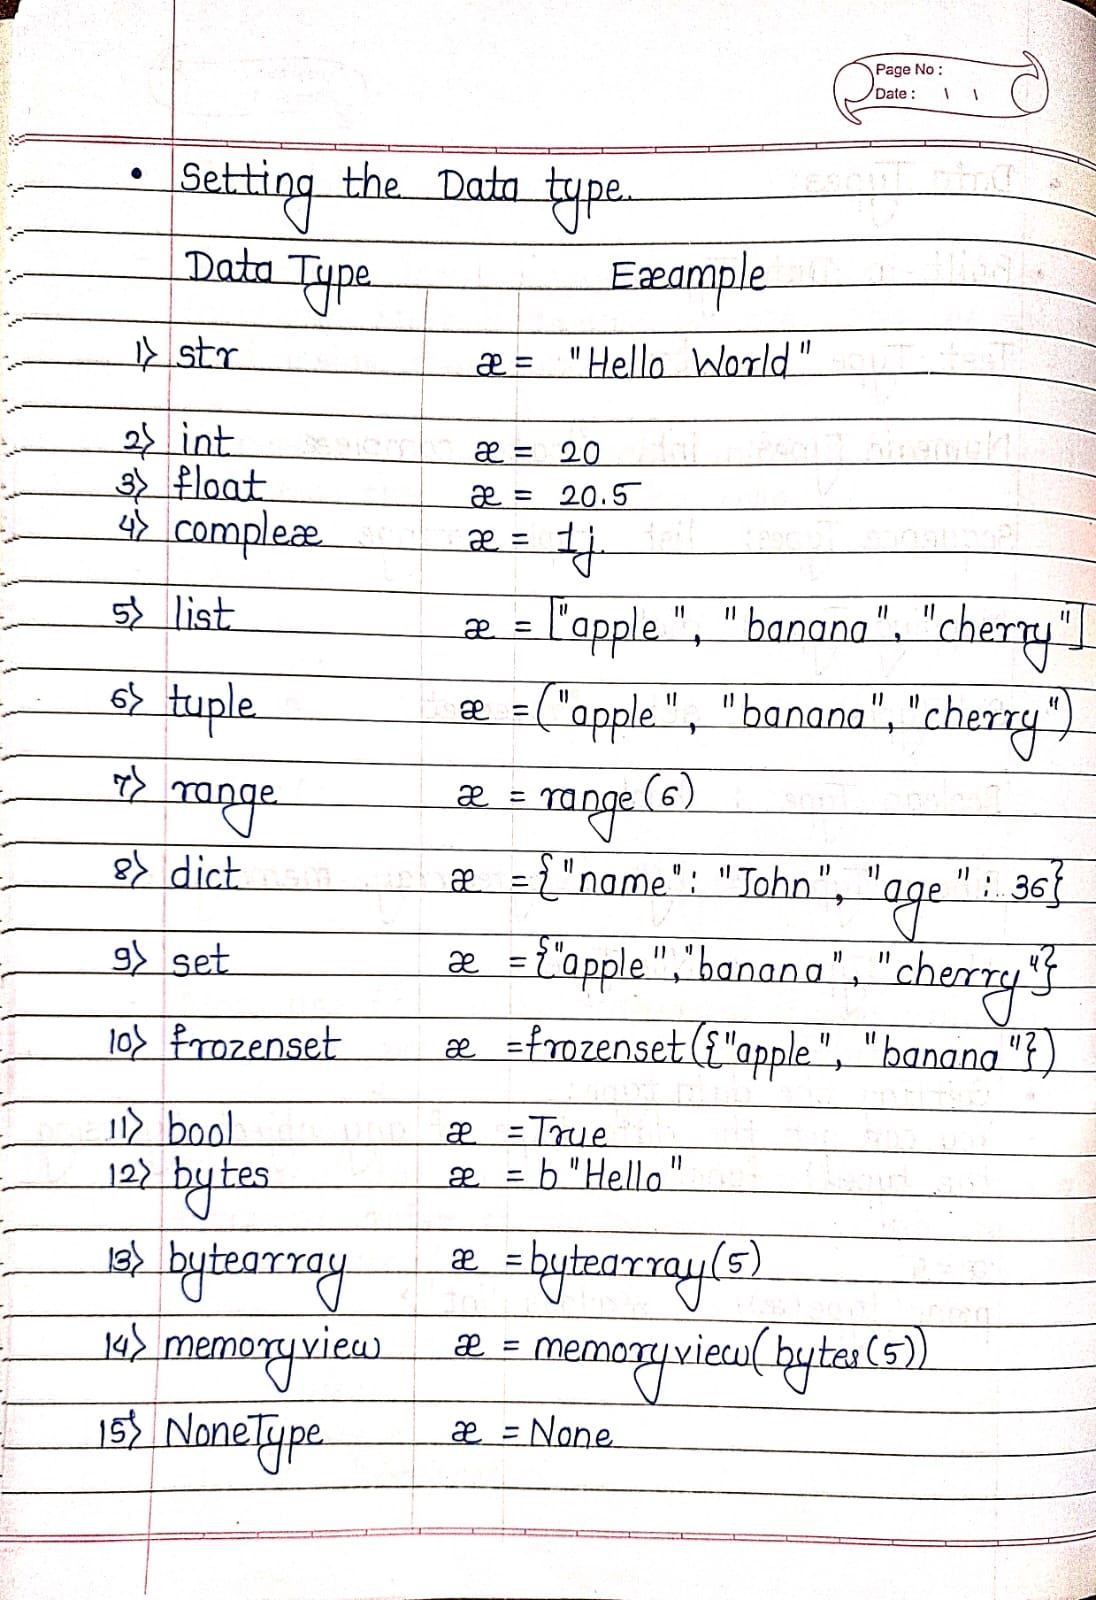 Page No :
Date : \ \
• Setting the Data type.
Data Type Example
1) str x = "Hello World"
2) int x = 20
3) float x = 20.5
4) complex x = 1j
5) list x = ["apple", "banana", "cherry"]
6) tuple x = ("apple", "banana", "cherry")
7) range x = range(6)
8) dict x = {"name": "John", "age": 36}
9) set x = {"apple", "banana", "cherry"}
10) frozenset x = frozenset({"apple", "banana"})
11) bool x = True
12) bytes x = b"Hello"
13) bytearray x = bytearray(5)
14) memoryview x = memoryview(bytes(5))
15) NoneType x = None